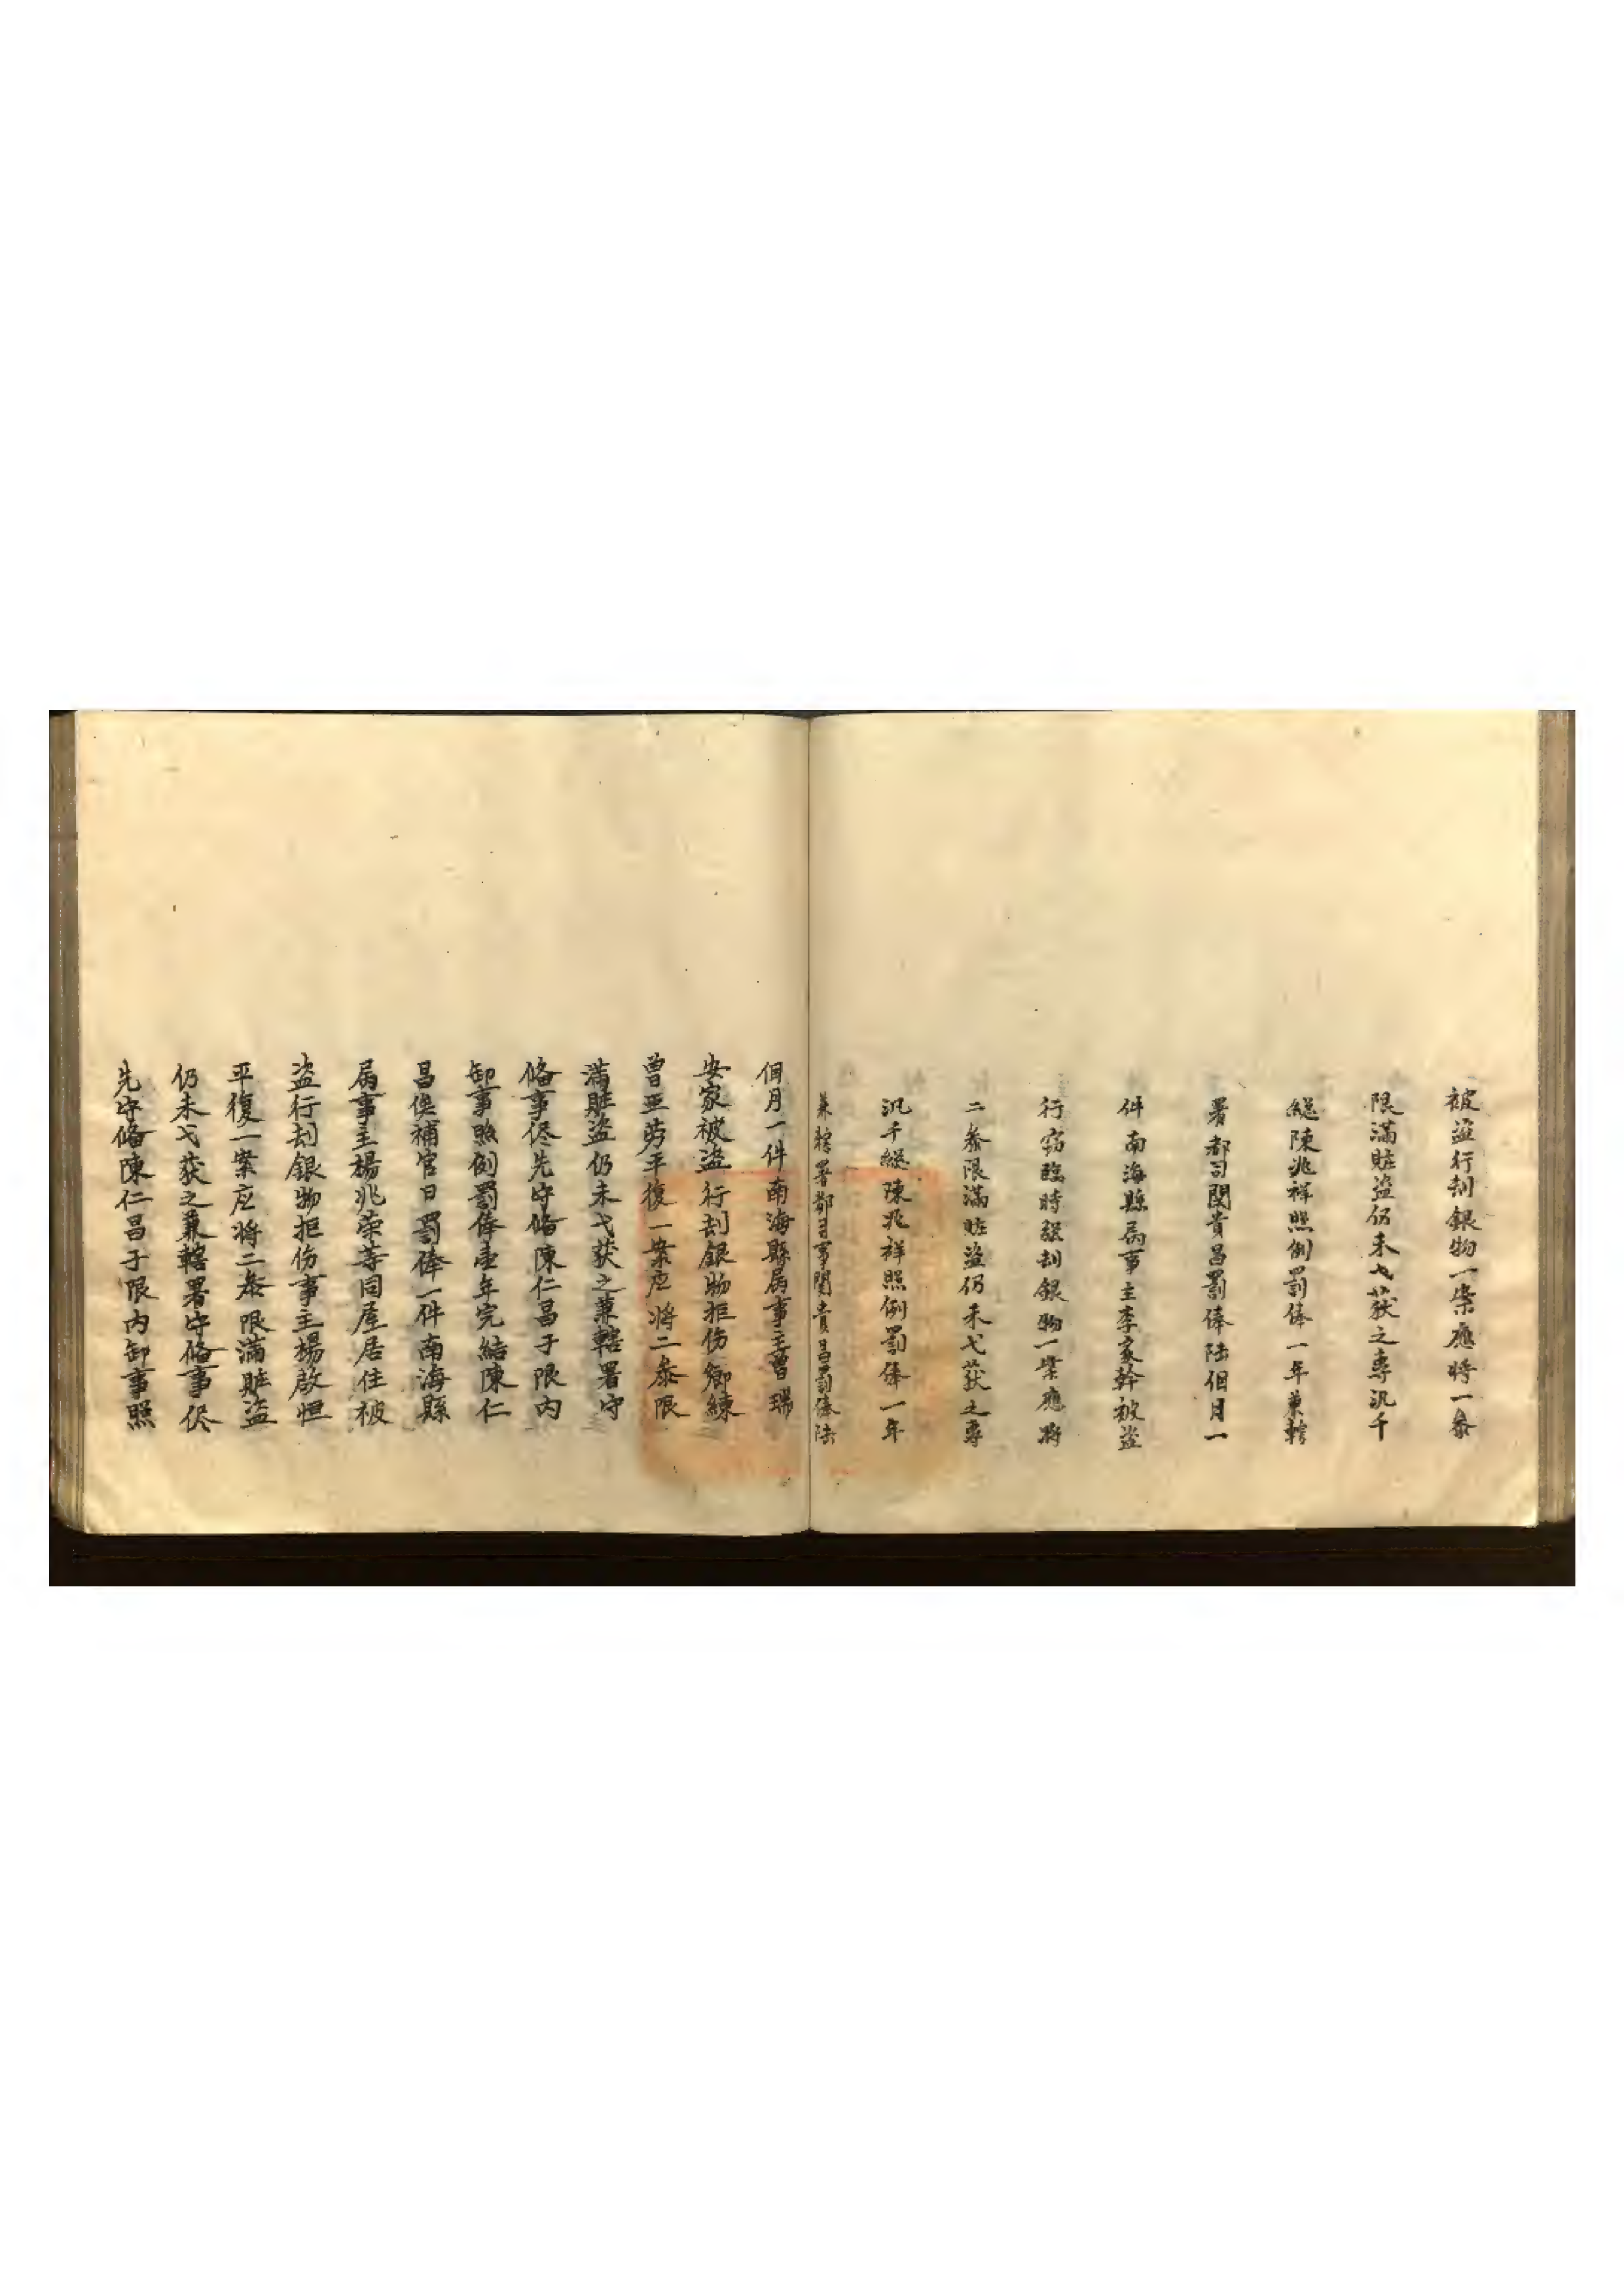 被盗行刦銀物一案應将一叅
限滿賍盗仍未弋获之專汛千
総陳兆祥照例罰俸一年兼轄
署都司閔貴昌罰俸陆個月一
件南海縣属事主李家幹被盗
行窃臨時強刦銀物一案應將
二叅限滿賍盗仍未弋获之專
汛千総陳兆祥照例罰俸一年
兼轄署都司事閔貴昌罰俸陆
個月一件南海縣属事主曽瑞
安家被盗行刦銀物拒伤鄉練
曽亚勞平復一案应将二叅限
滿賍盗仍未弋获之兼轄署守
俻事侭先守俻陳仁昌于限内
卸事照例罰俸壹年完結陳仁
昌俟補官日罰俸一件南海縣
属事主楊兆荣等同屋居住被
盗行刦銀物拒伤事主楊啟恒
平復一案应将二叅限滿賍盗
仍未弋获之兼轄署守俻事侭
先守俻陳仁昌于限内卸事照